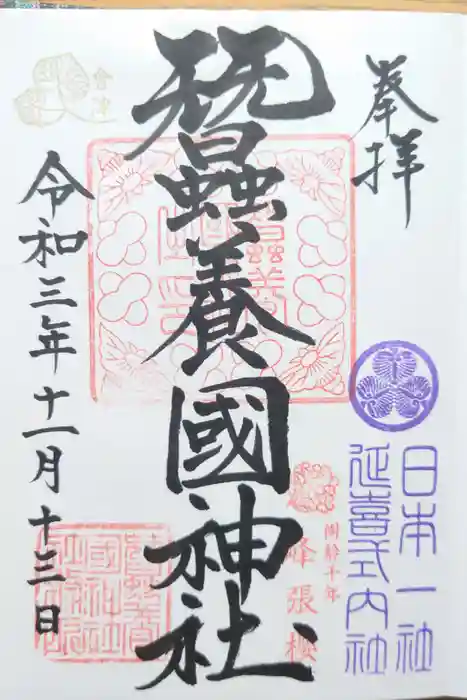 奉拝
日本一社
延喜式内社
蠶養國神社
樹齢千年
峰張桜
令和三年十一月十三日
會津